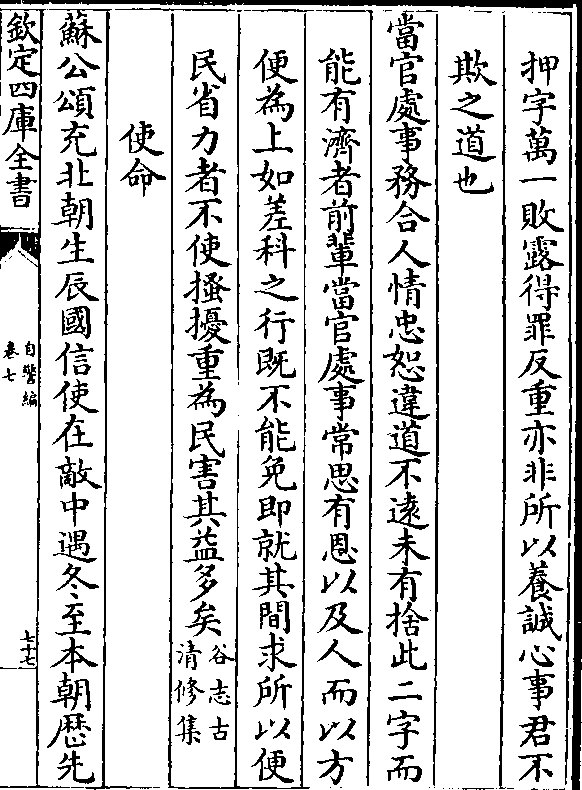 押字萬一敗露得罪反重亦非所以養誠心事君不
欺之道也
當官處事務合人情忠恕違道不逺未有捨此二字而
能有濟者前輩當官處事常思有恩以及人而以方
便為上如差科之行既不能免即就其間求所以便
民省力者不使搔擾重為民害其益多矣谷志古
清修集
使命
蘇公頌充北朝生辰國信使在敵中遇冬至本朝歴先
欽定四庫全書
自警編
卷七
七十七